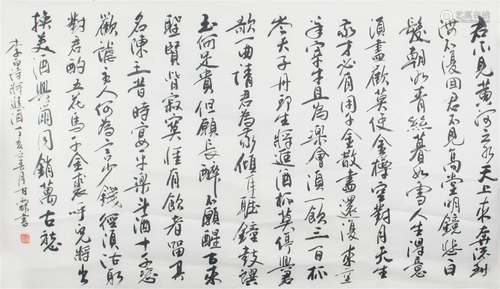 君不見黃河之水天上來奔流到
海不復回君不見高堂明鏡悲白
髮朝如青絲暮如雪人生得意
須盡歡莫使金樽空對月天生
我才必有用千金散盡還復來烹
羊宰牛且為樂會須一飲三百杯
岑夫子丹邱生將進酒杯莫停與君
歌一曲請君為我傾耳聽鐘鼓饌
玉何足貴但願長醉不願醒古來
聖賢皆寂寞惟有飲者留其
名陳王昔時宴平樂斗酒十千恣
歡謔主人何為言少錢徑須沽取
對君酌五花馬千金裘呼兒將出
換美酒與爾同銷萬古愁
李白詩將進酒丁亥之春月書